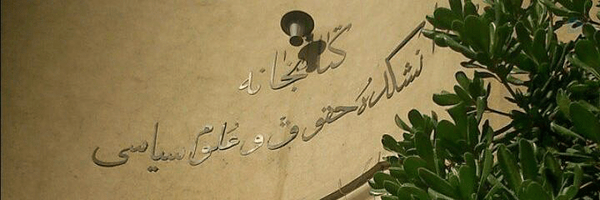 کتابخانه
دانشکده حقوق و علوم سیاسی